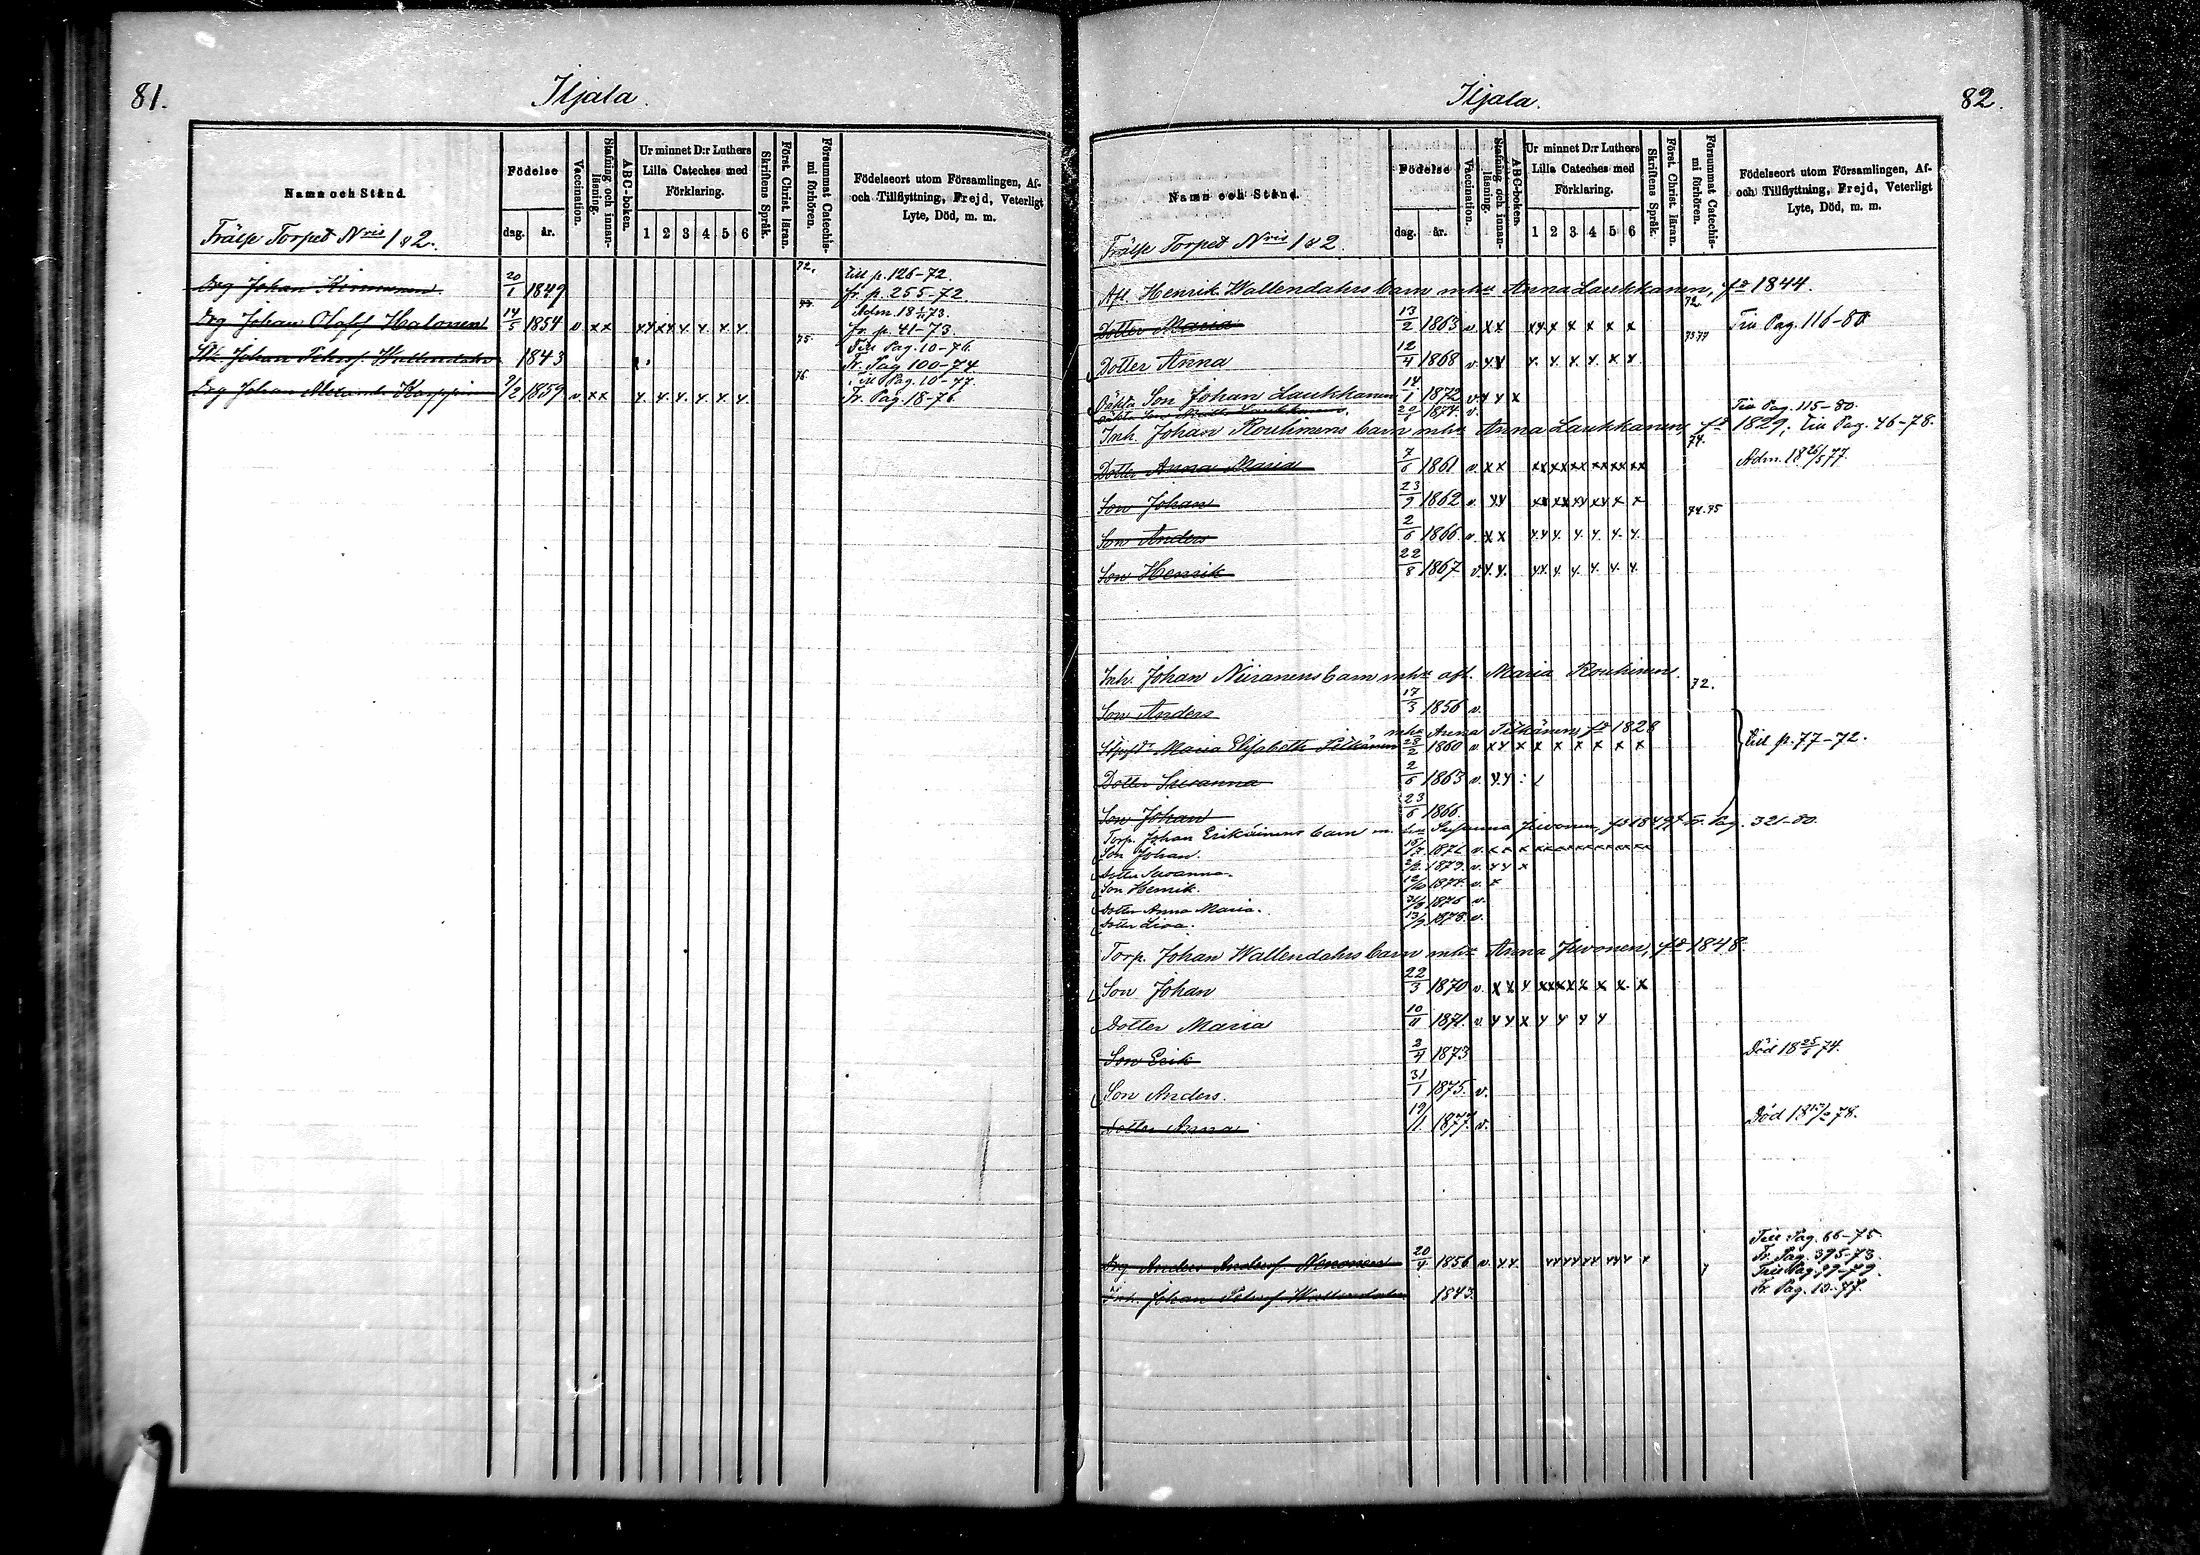 81.
Iljala.
Namn och Stånd.
Födelse
dag.
år.
Vaccination.
Stafning och innan-läsning.
ABC-boken.
Ur minnet D:r Luthers
Lilla Cateches med
Förklaring.
1 2 3 4 5 6
Skriftens Språk.
Först. Christ. läran.
Försummat Catechis-mi förhören.
Födelseort utom Församlingen, Af-
och Tillflyttning, Frejd, Veterligt
Lyte, Död, m. m.
Frälse Torpet N:ris 1 & 2.
72. till p. 126-72.
Drg Johan 20/1 1849 fr. p. 255-72.
Adm. 18 73.
Drg Johan Olofsf Halonen 14/5 1854 v x x fr. p. 41-73.
75. Till Pag. 10-76.
Johan Petersf. Wallendahr 1843 Fr. Pag 100-74
76. Till Pag. 10-77.
Drg Johan Alexander 9/2 1859 v x x Fr. Pag. 18-76.
82.
Iljala.
Namn och Stånd.
Födelse
dag.
år.
Vaccination.
Stafning och innan-läsning.
ABC-boken.
Ur minnet D:r Luthers
Lilla Cateches med
Förklaring.
1 2 3 4 5 6
Skriftens Språk.
Först. Christ. läran.
Försummat Catechis-mi förhören.
Födelseort utom Församlingen, Af-
och Tillflyttning, Frejd, Veterligt
Lyte, Död, m. m.
Frälse Torpet N:ris 1 & 2.
Afl. Henrik Wallendahrs barn m. hu Anna Laukkanen, fd 1844.
Dotter Maria 13/2 1863 v x x xx x x x x x 72. Till Pag. 116-80
Dotter Anna 12/4 1868 v x x x x x x x x 73 79
Oäkta Son Johan Laukkanen 14/1 1872 v x x x
1874 v. Till Pag. 115-80.
Inh. Johan Rouhinens barn m. hu Anna Laukkanen, fd 1829, Till Pag. 46-78.
Dotter Anna Maria 7/6 1861 v x x 74. Adm. 18 26/5 77.
Son Johan 23/9 1862 v x x
74.75
Son Anders 2/6 1866 v x x
Son Henrik 22/8 1867 v x x
Inh. Johan Niiranens barn m. hu afl. Maria Rouhinen. 72.
Son Anders 17/3 1856 v.
m. hu Anna Pitkänen, fd 1828
Maria Elisabeth Pitkänen 1860 v x x x x x x x x x till p. 77-72.
Dotter Susanna 2/6 1863 v. x x
Son Johan 23/6 1866.
Torp. Johan Erikäinens barn m. hu Susanna Juvonen, fd 1849, Fr. Pag. 321-80.
Son Johan. 1871 v. x x x
Dotter Susanna. 1873 v. x x x
Son Henrik. 1874. v. x
Dotter Anna Maria. 1876 v.
Dotter Lisa. 1878. v.
Torp. Johan Wallendahrs barn m. hu Anna Juvonen, fd 1848.
Son Johan 22/3 1870 v. x x x
Dotter Maria 10/11 1871. v. x x x x x x x
Son Erik 2/4 1873 Död 18 25/ 74.
Son Anders. 31/1 1875. v.
Dotter Anna 19/11 1877. v. Död 18 78.
Till Pag. 66-75.
Drg Anders Andersf. Nenonen 20/4 1856 v. x x Fr. Pag. 395-73.
Till Pag. 99-79.
Inh. Johan Petersf Wallendahr 1843. Fr. Pag. 10-77.